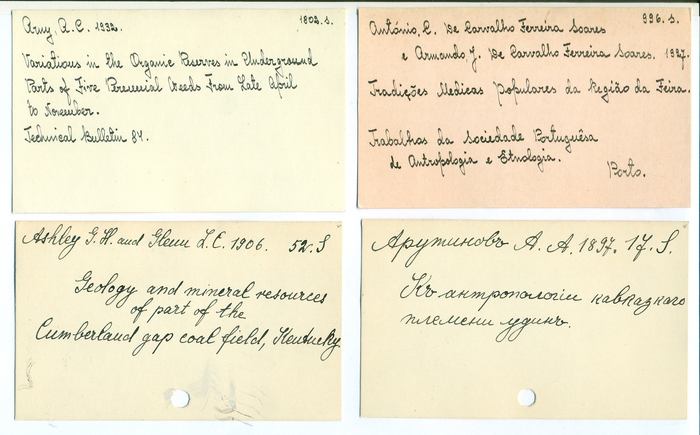 Arny, A.C. 1932. 1802.S.
Variations in the Organic Reserves in Underground
Parts of Five Perennial Weeds From Late April
to November.
Technical Bulletin 84.
António, C. De Carvalho Ferreira Soares 996.S.
e Armando, J. De Carvalho Ferreira Soares. 1937.
Tradições Medicas Populares da Região da Feira.
Trabalhos da Sociedade Portuguêsa
de Antropologia e Etnologia.
Porto.
Ashley G.H. and Glenn L.C. 1906. 52.S
Geology and mineral resources
of part of the
Cumberland gap coal field, Kentucky
Арутиновъ А. А. 1897. 17.S.
Къ антропологіи кавказкаго
племени удинъ.